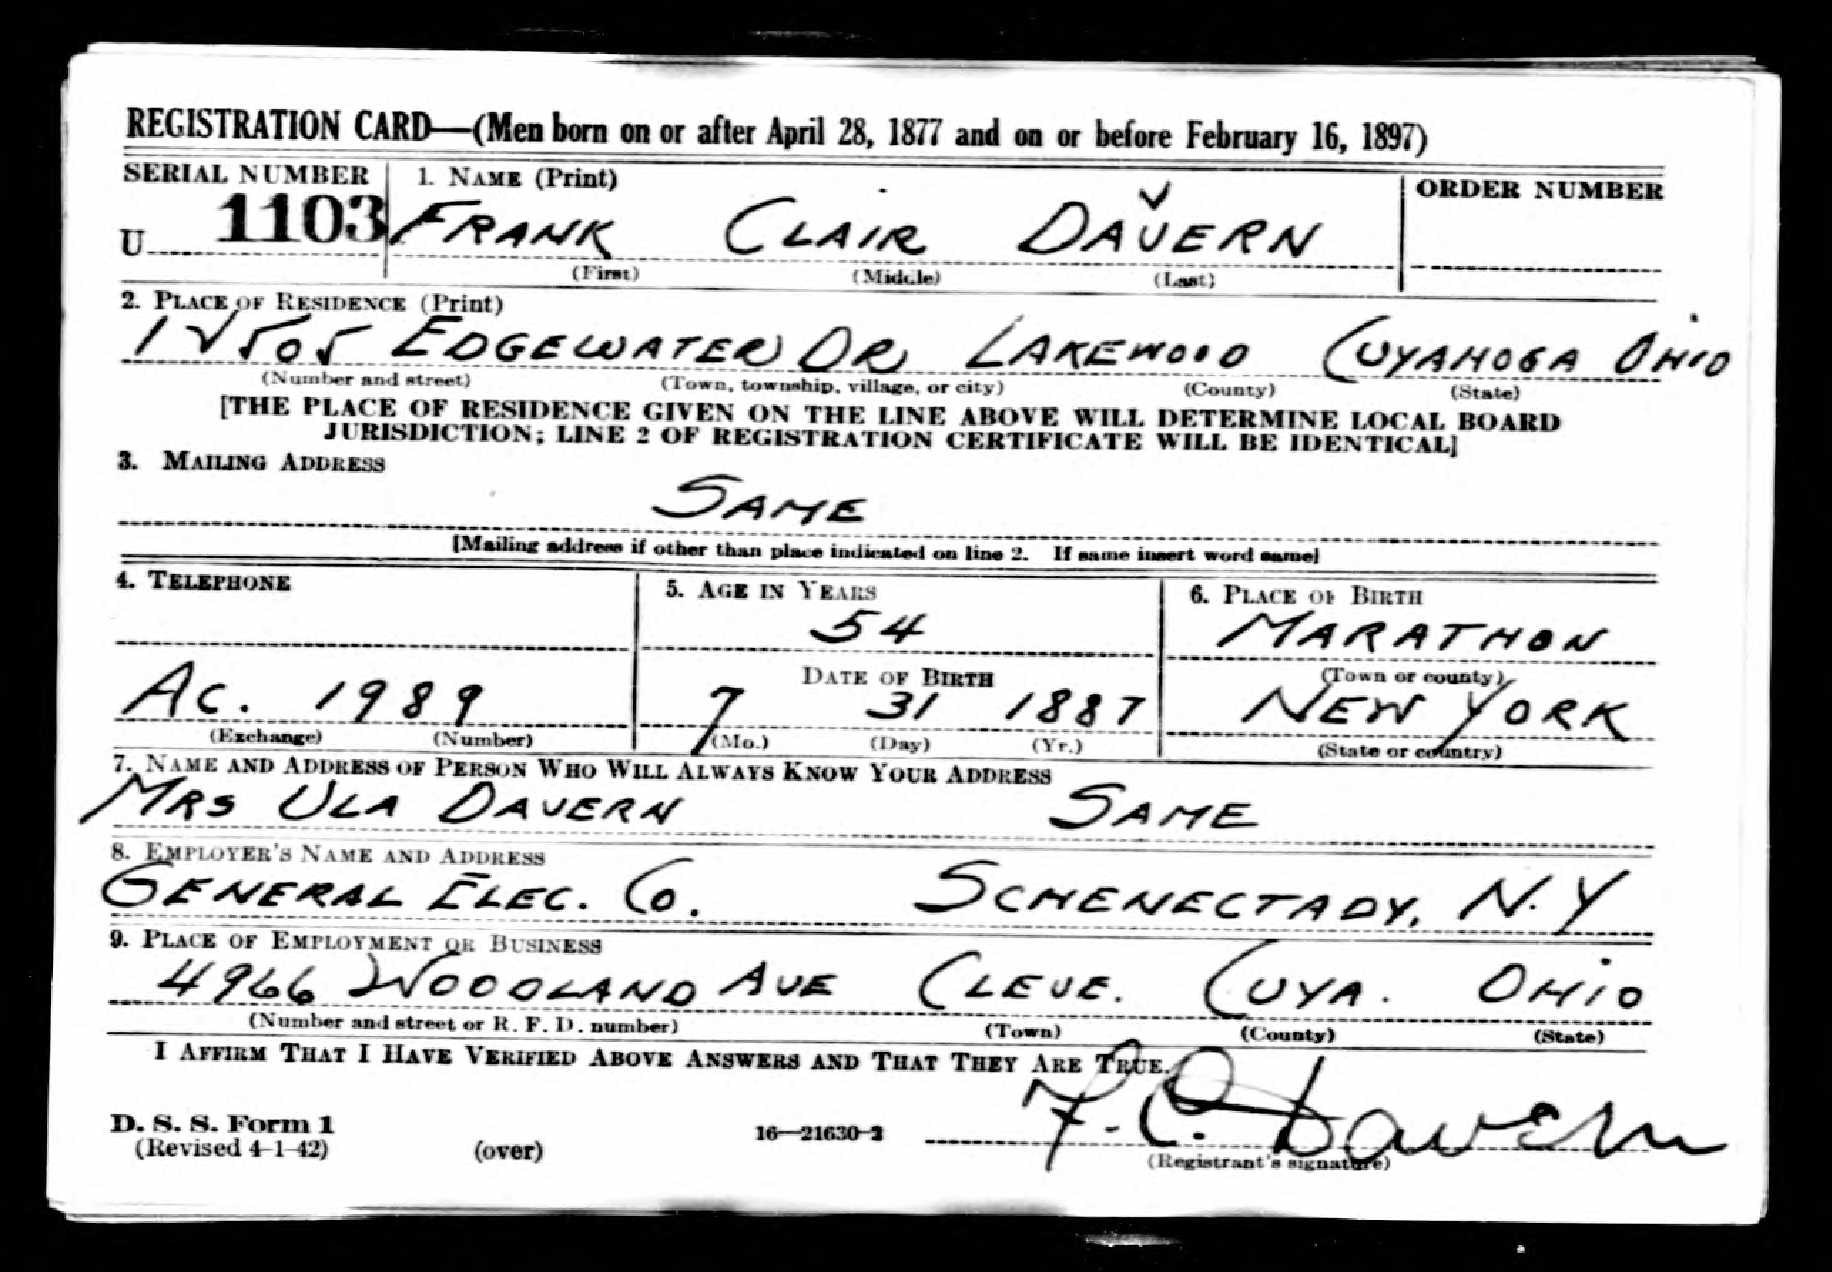 REGISTRATION CARD—(Men born on or after April 28, 1877 and on or before February 16, 1897)
SERIAL NUMBER 1. NAME (Print) ORDER NUMBER
U 1103 FRANK CLAIR DAVERN
(First) (Middle) (Last)
2. PLACE OF RESIDENCE (Print)
12505 EDGEWATER DR LAKEWOOD CUYAHOGA OHIO
(Number and street) (Town, township, village, or city) (County) (State)
[THE PLACE OF RESIDENCE GIVEN ON THE LINE ABOVE WILL DETERMINE LOCAL BOARD
JURISDICTION; LINE 2 OF REGISTRATION CERTIFICATE WILL BE IDENTICAL]
3. MAILING ADDRESS
SAME
[Mailing address if other than place indicated on line 2. If same insert word same]
4. TELEPHONE 5. AGE IN YEARS 6. PLACE OF BIRTH
54 MARATHON
DATE OF BIRTH (Town or county)
AC. 1989 7 31 1887 NEW YORK
(Exchange) (Number) (Mo.) (Day) (Yr.) (State or country)
7. NAME AND ADDRESS OF PERSON WHO WILL ALWAYS KNOW YOUR ADDRESS
MRS ULA DAVERN SAME
8. EMPLOYER'S NAME AND ADDRESS
GENERAL ELEC. CO. SCHENECTADY, N.Y
9. PLACE OF EMPLOYMENT OR BUSINESS
4966 WOODLAND AVE CLEVE. CUYA. OHIO
(Number and street or R. F. D. number) (Town) (County) (State)
I AFFIRM THAT I HAVE VERIFIED ABOVE ANSWERS AND THAT THEY ARE TRUE.
F. C. Davern
D. S. S. Form 1
(Revised 4-1-42) (over) 16—21630-2 (Registrant's signature)